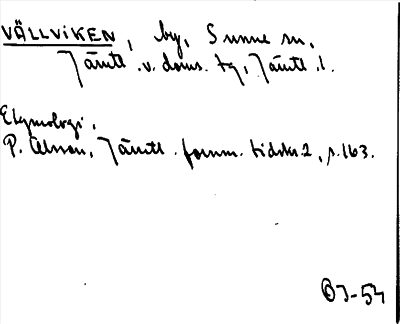 VÄLLVIKEN, by, Sunne sn,
Jämtl. v. doms. tg, Jämtl. l.
Etymologi,
P. Olsson, Jämtl. fornm. tidskr. 2, s. 163.
OJ-54